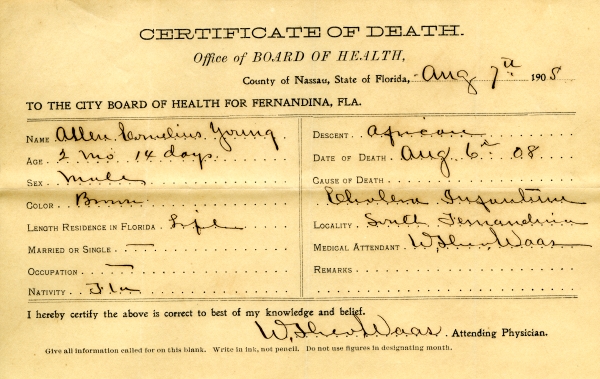 CERTIFICATE OF DEATH.
Office of BOARD OF HEALTH,
County of Nassau, State of Florida, Aug 7th 1908
TO THE CITY BOARD OF HEALTH FOR FERNANDINA, FLA.
NAME Allen Cornelius Young
AGE 2 mo 14 days
SEX Male
COLOR Brown
LENGTH RESIDENCE IN FLORIDA Life
MARRIED OR SINGLE —
OCCUPATION —
NATIVITY Fla
DESCENT African
DATE OF DEATH Aug 6th 08
CAUSE OF DEATH
Cholera Infantum
LOCALITY South Fernandina
MEDICAL ATTENDANT W. Theo, Waas
REMARKS
I hereby certify the above is correct to best of my knowledge and belief.
W. Theo Waas Attending Physician.
Give all information called for on this blank. Write in ink, not pencil. Do not use figures in designating month.